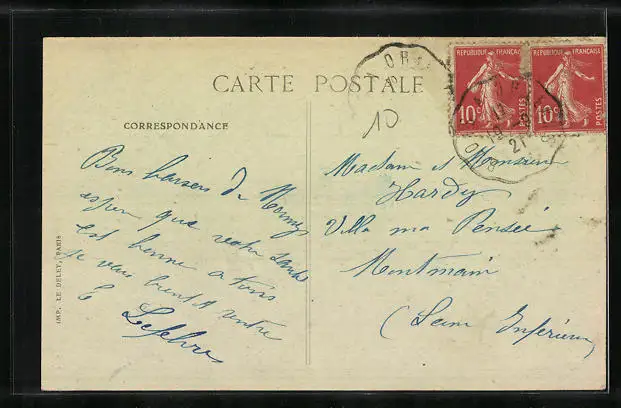 CARTE POSTALE
REPUBLIQUE FRANÇAISE
10c
POSTES
REPUBLIQUE FRANÇAISE
10c
POSTES
10
CORRESPONDANCE
Bons baisers de
espère que votre santé
est bonne a tous
je vous
E Lefebvre
Madame et Monsieur
Hardy
Villa ma Pensée
Montmain
(Seine Inférieure)
IMP. LE DELEY, PARIS